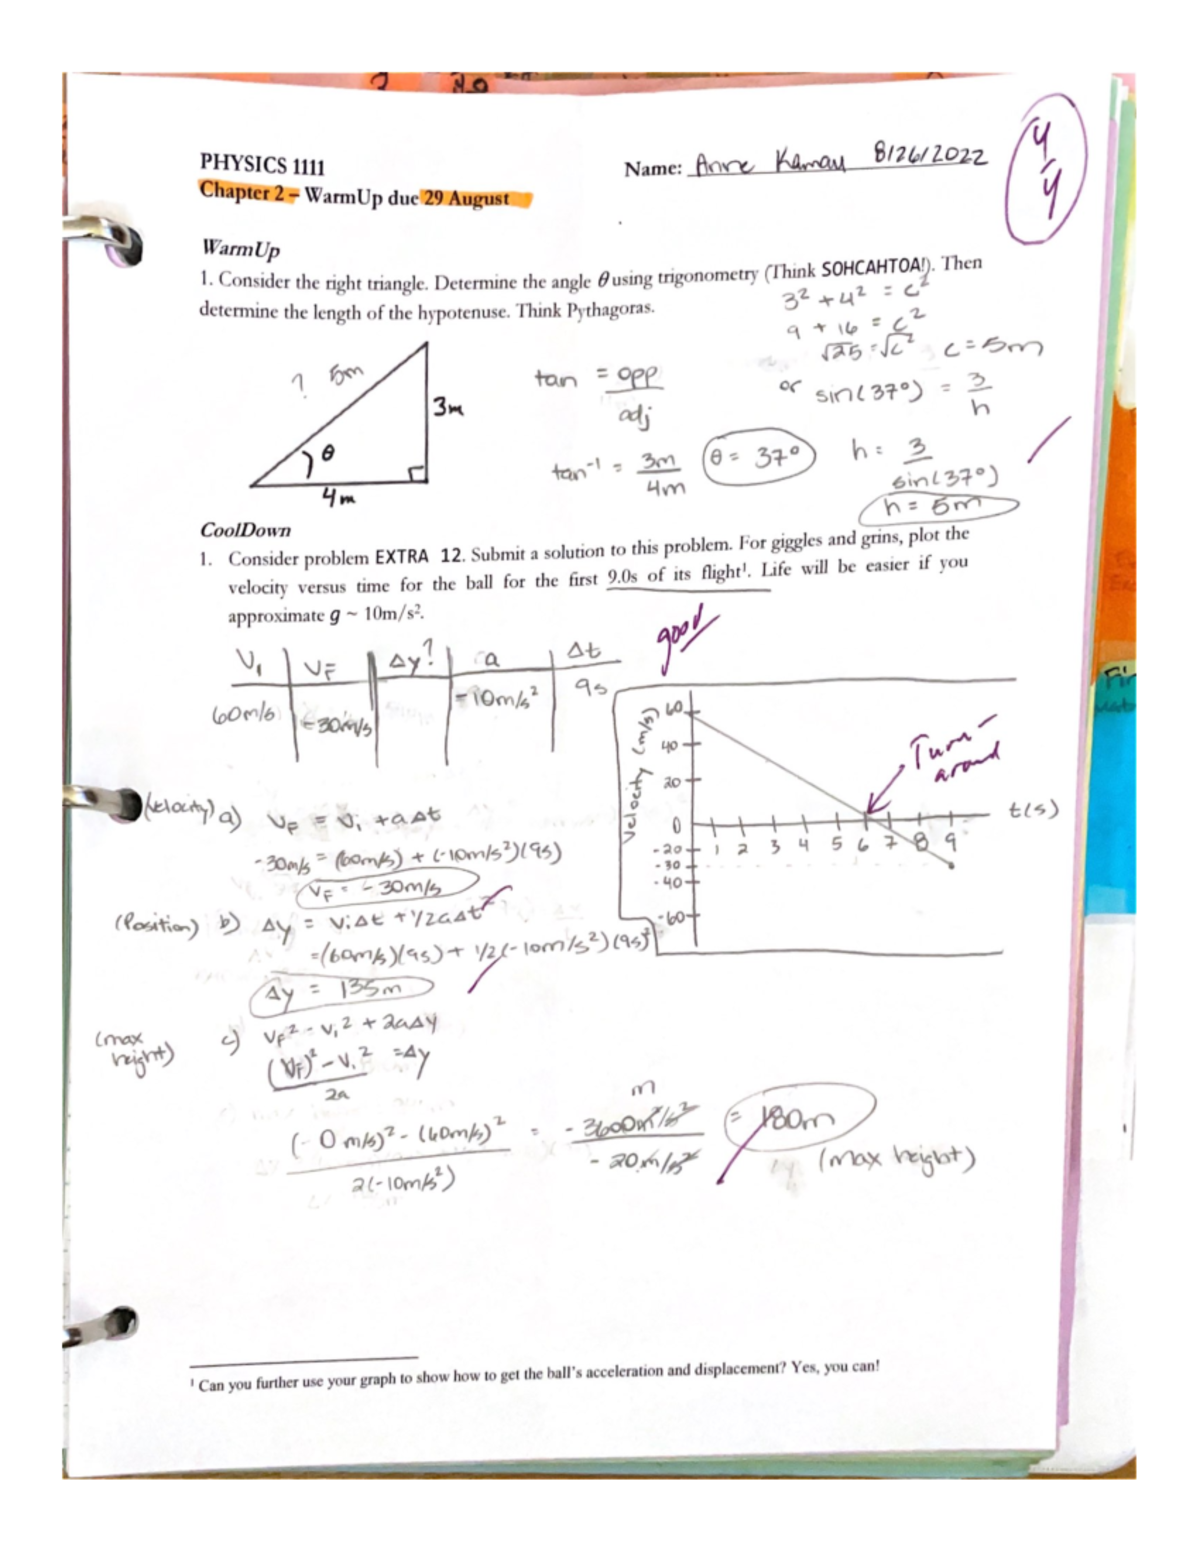 PHYSICS 1111
Name: Anne Kamau 8/26/2022
4/4
Chapter 2 – WarmUp due 29 August
WarmUp
1. Consider the right triangle. Determine the angle θ using trigonometry (Think SOHCAHTOA!). Then
determine the length of the hypotenuse. Think Pythagoras.
3² + 4² = c²
9 + 16 = c²
√25 = √c² c = 5m
? 5m
3m
θ
4m
tan = opp/adj
or sin(37°) = 3/h
tan⁻¹ = 3m/4m θ = 37°
h = 3/sin(37°)
h = 5m
CoolDown
1. Consider problem EXTRA 12. Submit a solution to this problem. For giggles and grins, plot the
velocity versus time for the ball for the first 9.0s of its flight¹. Life will be easier if you
approximate g ~ 10m/s².
good
V₁ VF Δy? a Δt
60m/s -30m/s -10m/s² 9s
Velocity (m/s)
60
40
20
0
-20
-30
-40
-60
1 2 3 4 5 6 7 8 9
t(s)
Turn-
around
(velocity) a) VF = Vi + aΔt
-30m/s = (60m/s) + (-10m/s²)(9s)
VF = -30m/s
(Position) b) Δy = ViΔt + 1/2aΔt²
=(60m/s)(9s) + 1/2(-10m/s²)(9s)²
Δy = 135m
(max height) c) VF² - V₁² + 2aΔy
(VF)² - V₁² / 2a = Δy
(-0m/s)² - (60m/s)² / 2(-10m/s²) = -3600m²/s² / -20m/s² = 180m
m
(max height)
¹ Can you further use your graph to show how to get the ball's acceleration and displacement? Yes, you can!